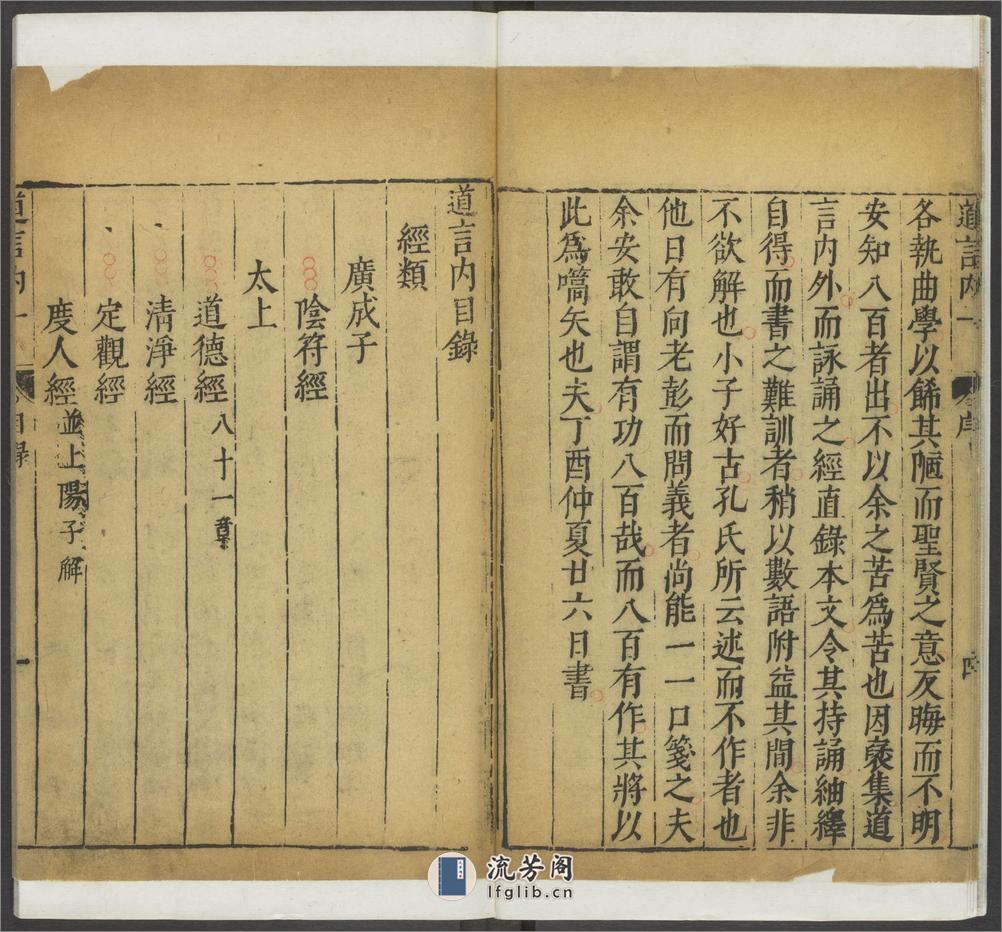 道言內一 序 四
各執曲學以餙其陋而聖賢之意反晦而不明
安知八百者出不以余之苦爲苦也因裒集道
言內外而詠誦之經直錄本文令其持誦紬繹
自得而書之難訓者稍以數語附益其間余非
不欲解也小子好古孔氏所云述而不作者也
他日有向老彭而問義者尚能一一口箋之夫
余安敢自謂有功八百哉而八百有作其將以
此爲嚆矢也夫丁酉仲夏廿六日書
道言內目錄
經類
廣成子
陰符經
太上
道德經 八十一章
清淨經
定觀經
度人經 並上陽子解
道言內一 目錄 一
流芳阁
lfglib.cn